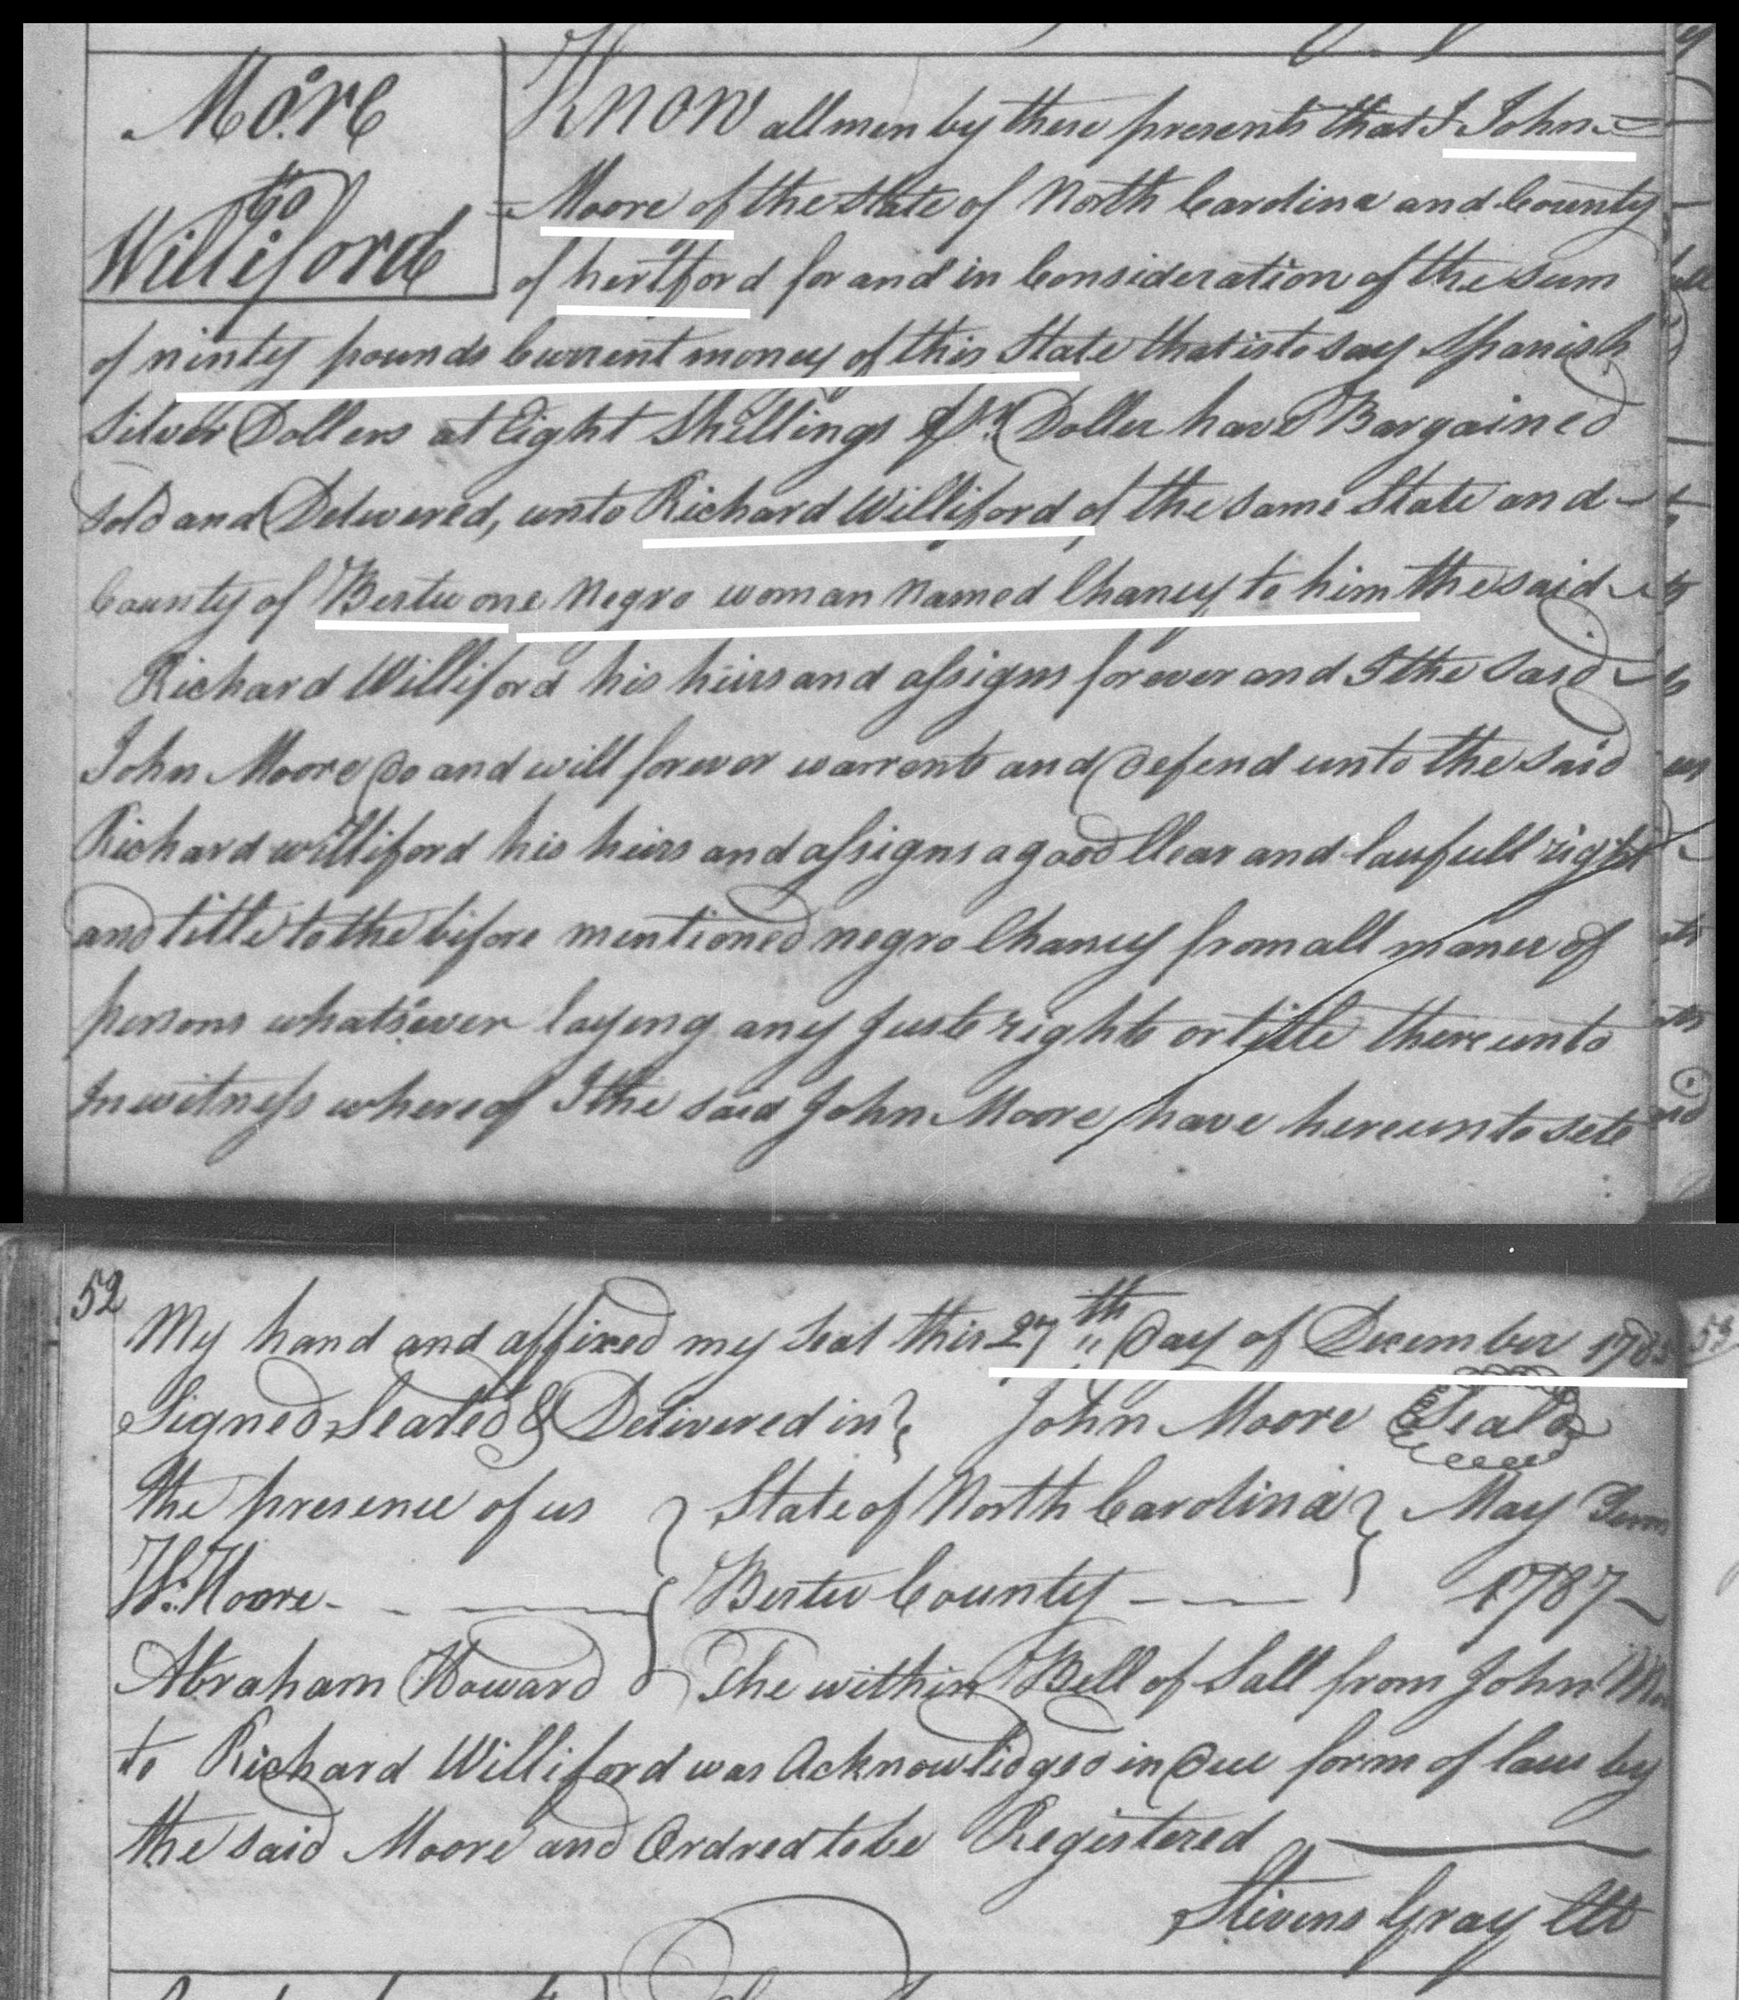 Moore
to
Williford
Know all men by these presents that I John
Moore of the State of North Carolina and County
of hertford for and in Consideration of the Sum
of ninty pounds Current money of this State that is to say Spanish
Silver Dollers at Eight Shillings pr. Doller have Bargained
Sold and Delivered, unto Richard Williford of the same State and
County of Bertie one Negro woman named Chaney to him the said
Richard Williford his heirs and assigns forever and I the said
John Moore do and will forever warrent and defend unto the said
Richard williford his heirs and assigns a good Clear and lawfull right
and title to the before mentioned negro Chaney from all maner of
persons whatsoever laying any Just right or title thereunto
In witness whereof I the said John Moore have hereunto sett
52
My hand and affixed my Seal this 27th Day of December
Signed Sealed & Delivered in John Moore Seal
the presence of us State of North Carolina May Term
W. Moore Bertie County 1787
Abraham Howard The within Bill of Sall from John
to Richard Williford was Acknowlidged in Due form of law by
the said Moore and Ordred to be Registered
Stevens Gray Clk